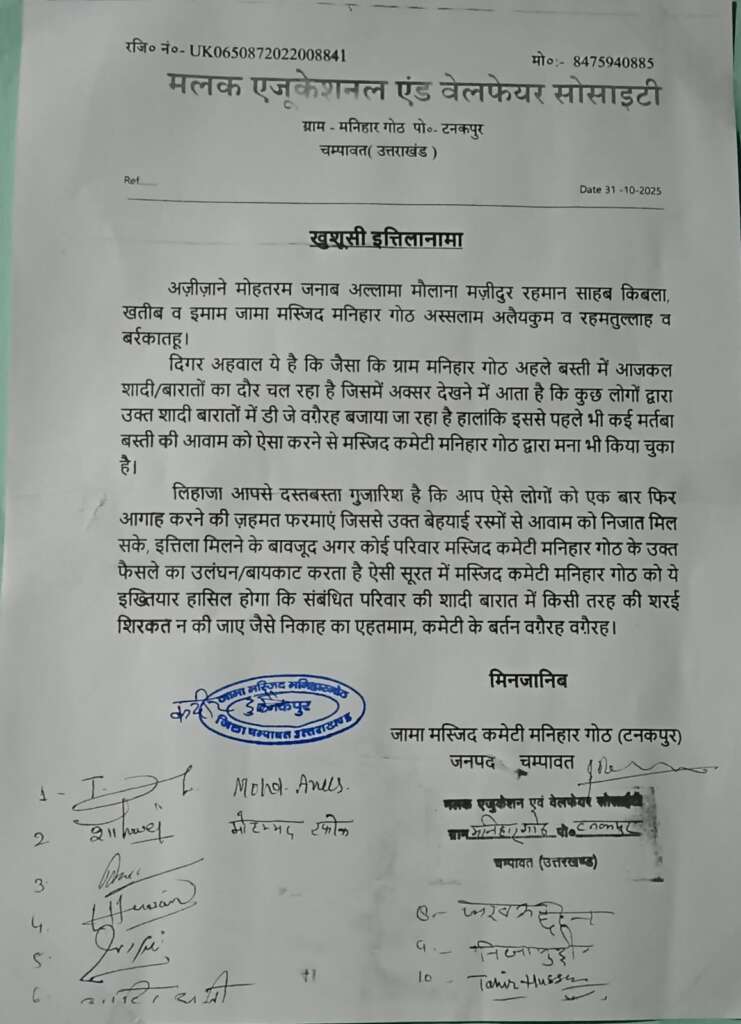 रजि० नं०- UK0650872022008841
मो०:- 8475940885
मलक एजूकेशनल एंड वेलफेयर सोसाइटी
ग्राम - मनिहार गोठ पो०- टनकपुर
चम्पावत( उत्तराखंड )
Ref......
Date 31 -10-2025
खुशूसी इत्तिलानामा
अज़ीज़ाने मोहतरम जनाब अल्लामा मौलाना मज़ीदुर रहमान साहब किबला,
खतीब व इमाम जामा मस्जिद मनिहार गोठ अस्सलाम अलैयकुम व रहमतुल्लाह व
बर्रकातहू।
दिगर अहवाल ये है कि जैसा कि ग्राम मनिहार गोठ अहले बस्ती में आजकल
शादी/बारातों का दौर चल रहा है जिसमें अक्सर देखने में आता है कि कुछ लोगों द्वारा
उक्त शादी बारातों में डी जे वग़ैरह बजाया जा रहा है हालांकि इससे पहले भी कई मर्तबा
बस्ती की आवाम को ऐसा करने से मस्जिद कमेटी मनिहार गोठ द्वारा मना भी किया चुका
है।
लिहाजा आपसे दस्तबस्ता गुजारिश है कि आप ऐसे लोगों को एक बार फिर
आगाह करने की ज़हमत फरमाएं जिससे उक्त बेहयाई रस्मों से आवाम को निजात मिल
सके, इत्तिला मिलने के बावजूद अगर कोई परिवार मस्जिद कमेटी मनिहार गोठ के उक्त
फैसले का उलंघन/बायकाट करता है ऐसी सूरत में मस्जिद कमेटी मनिहार गोठ को ये
इख्तियार हासिल होगा कि संबंधित परिवार की शादी बारात में किसी तरह की शरई
शिरकत न की जाए जैसे निकाह का एहतमाम, कमेटी के बर्तन वग़ैरह वग़ैरह।
मिनजानिब
जामा मस्जिद मनिहारगोठ
टनकपुर
जिला चम्पावत उत्तराखण्ड
जामा मस्जिद कमेटी मनिहार गोठ (टनकपुर)
जनपद चम्पावत
मलक एजुकेशन एवं वेलफेयर सोसाईटी
ग्राम मनिहार गोठ पो० टनकपुर
चम्पावत (उत्तरखण्ड)
1 - Mohd. Anees.
2
3
4.
5.
6
8.-
9.-
10 - Tahir Hussen